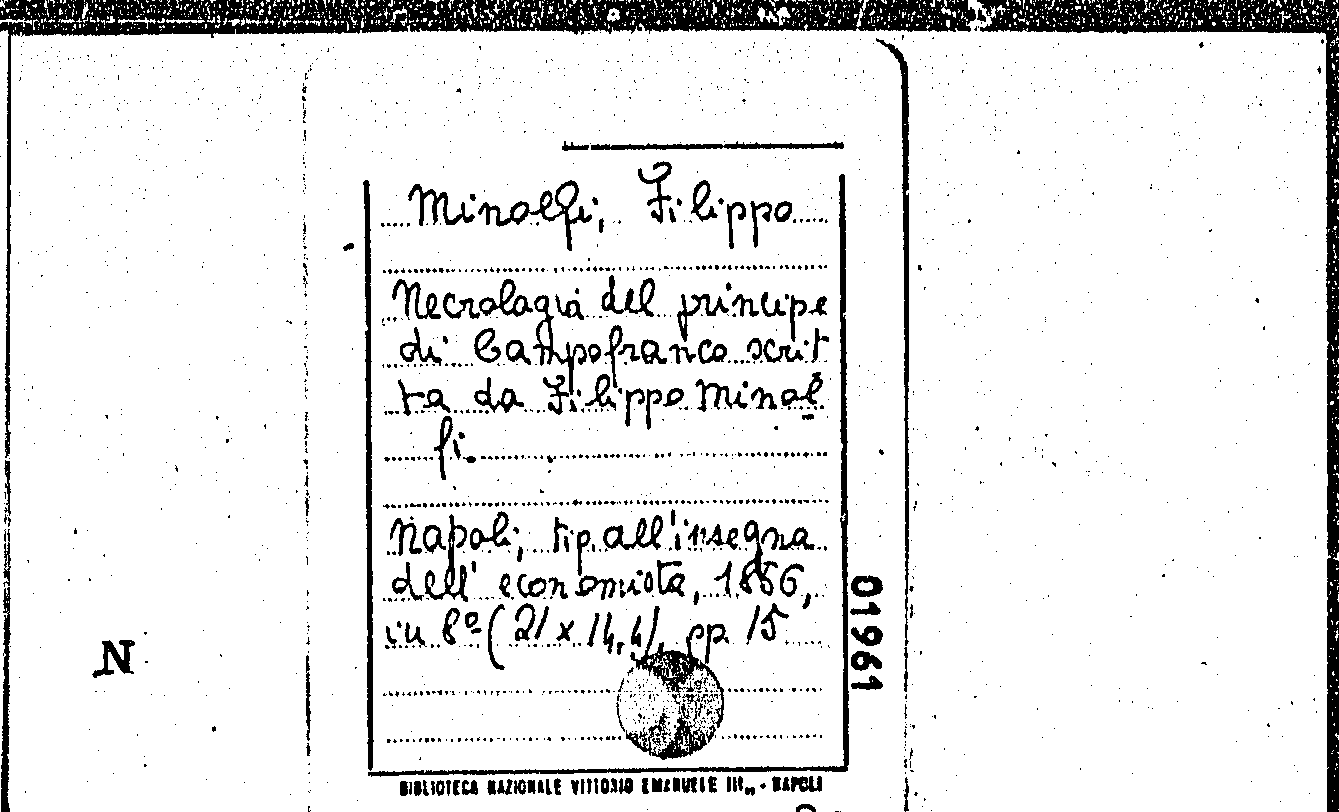 Minolfi, Filippo
Necrologia del principe
di Campofranco scrit
ta da Filippo Minol
fi.
Napoli, tip. all'insegna
dell' economista, 1856,
in 8º (21 x 14,4), pp. 15
01961
N
BIBLIOTECA NAZIONALE VITTORIO EMANUELE III - NAPOLI